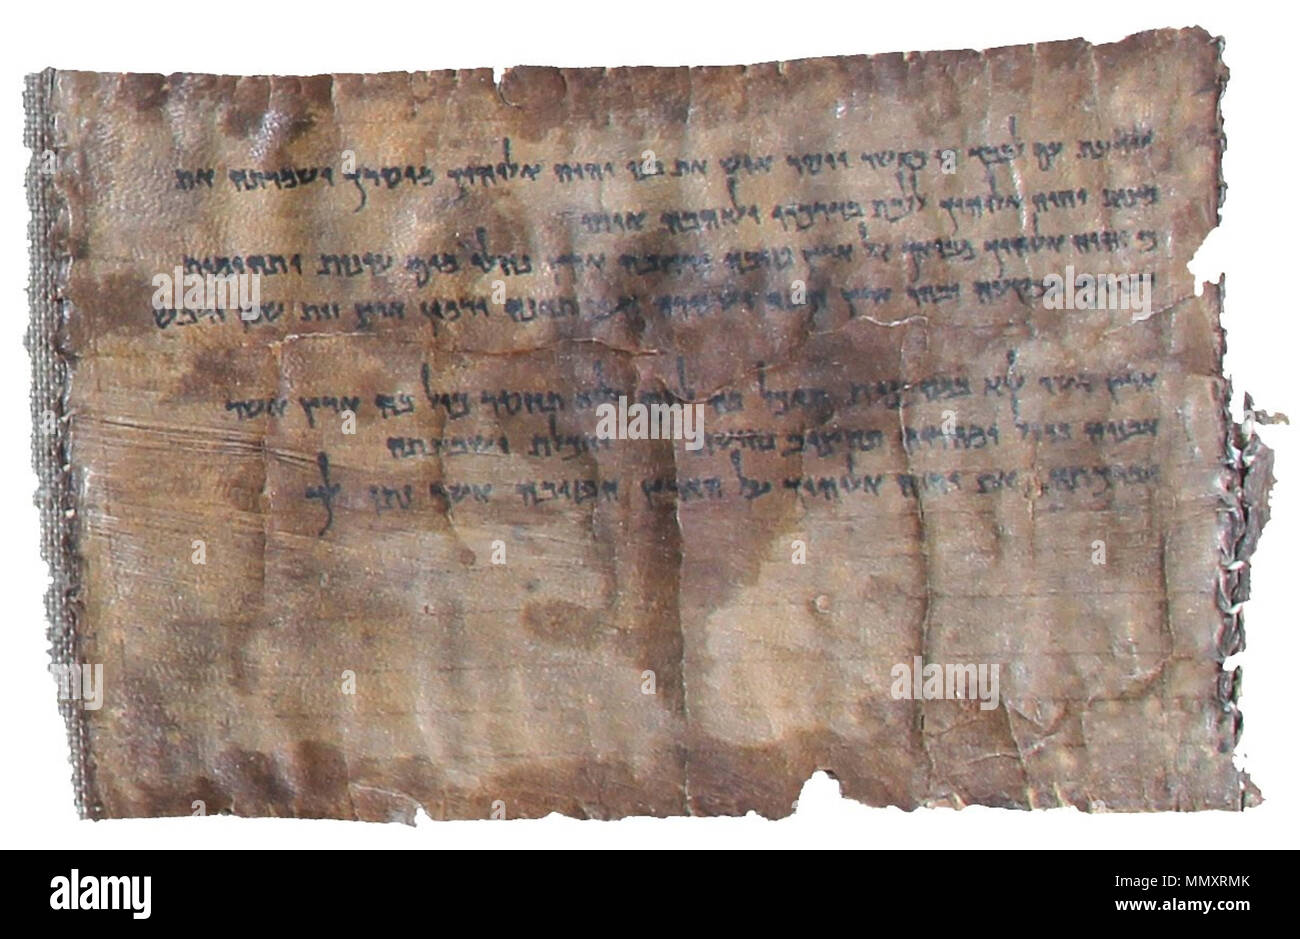 וידעת עם לבבך כי כאשר ייסר איש את בנו יהוה אלוהיך מיסרך ושמרתה את
מצות יהוה אלוהיך ללכת בדרכיו ולאהבה אותו
כי יהוה אלוהיך מביאך אל ארץ טובה ורחבה ארץ נחלי מים עינות ותהומות
בבקעה ובהר ארץ חטה ושעורה גפן תאנה ורמון ארץ זית שמן ודבש
ארץ אשר לא במסכנות תואכל בה לחם ולא תחסר כול בה ארץ אשר
אבניה ברזל ומהרריה תחצוב נחושת ואכלת ושבעתה
וברכתה את יהוה אלוהיך על הארץ הטובה אשר נתן לך
alamy
Image ID: MMXRMK
www.alamy.com